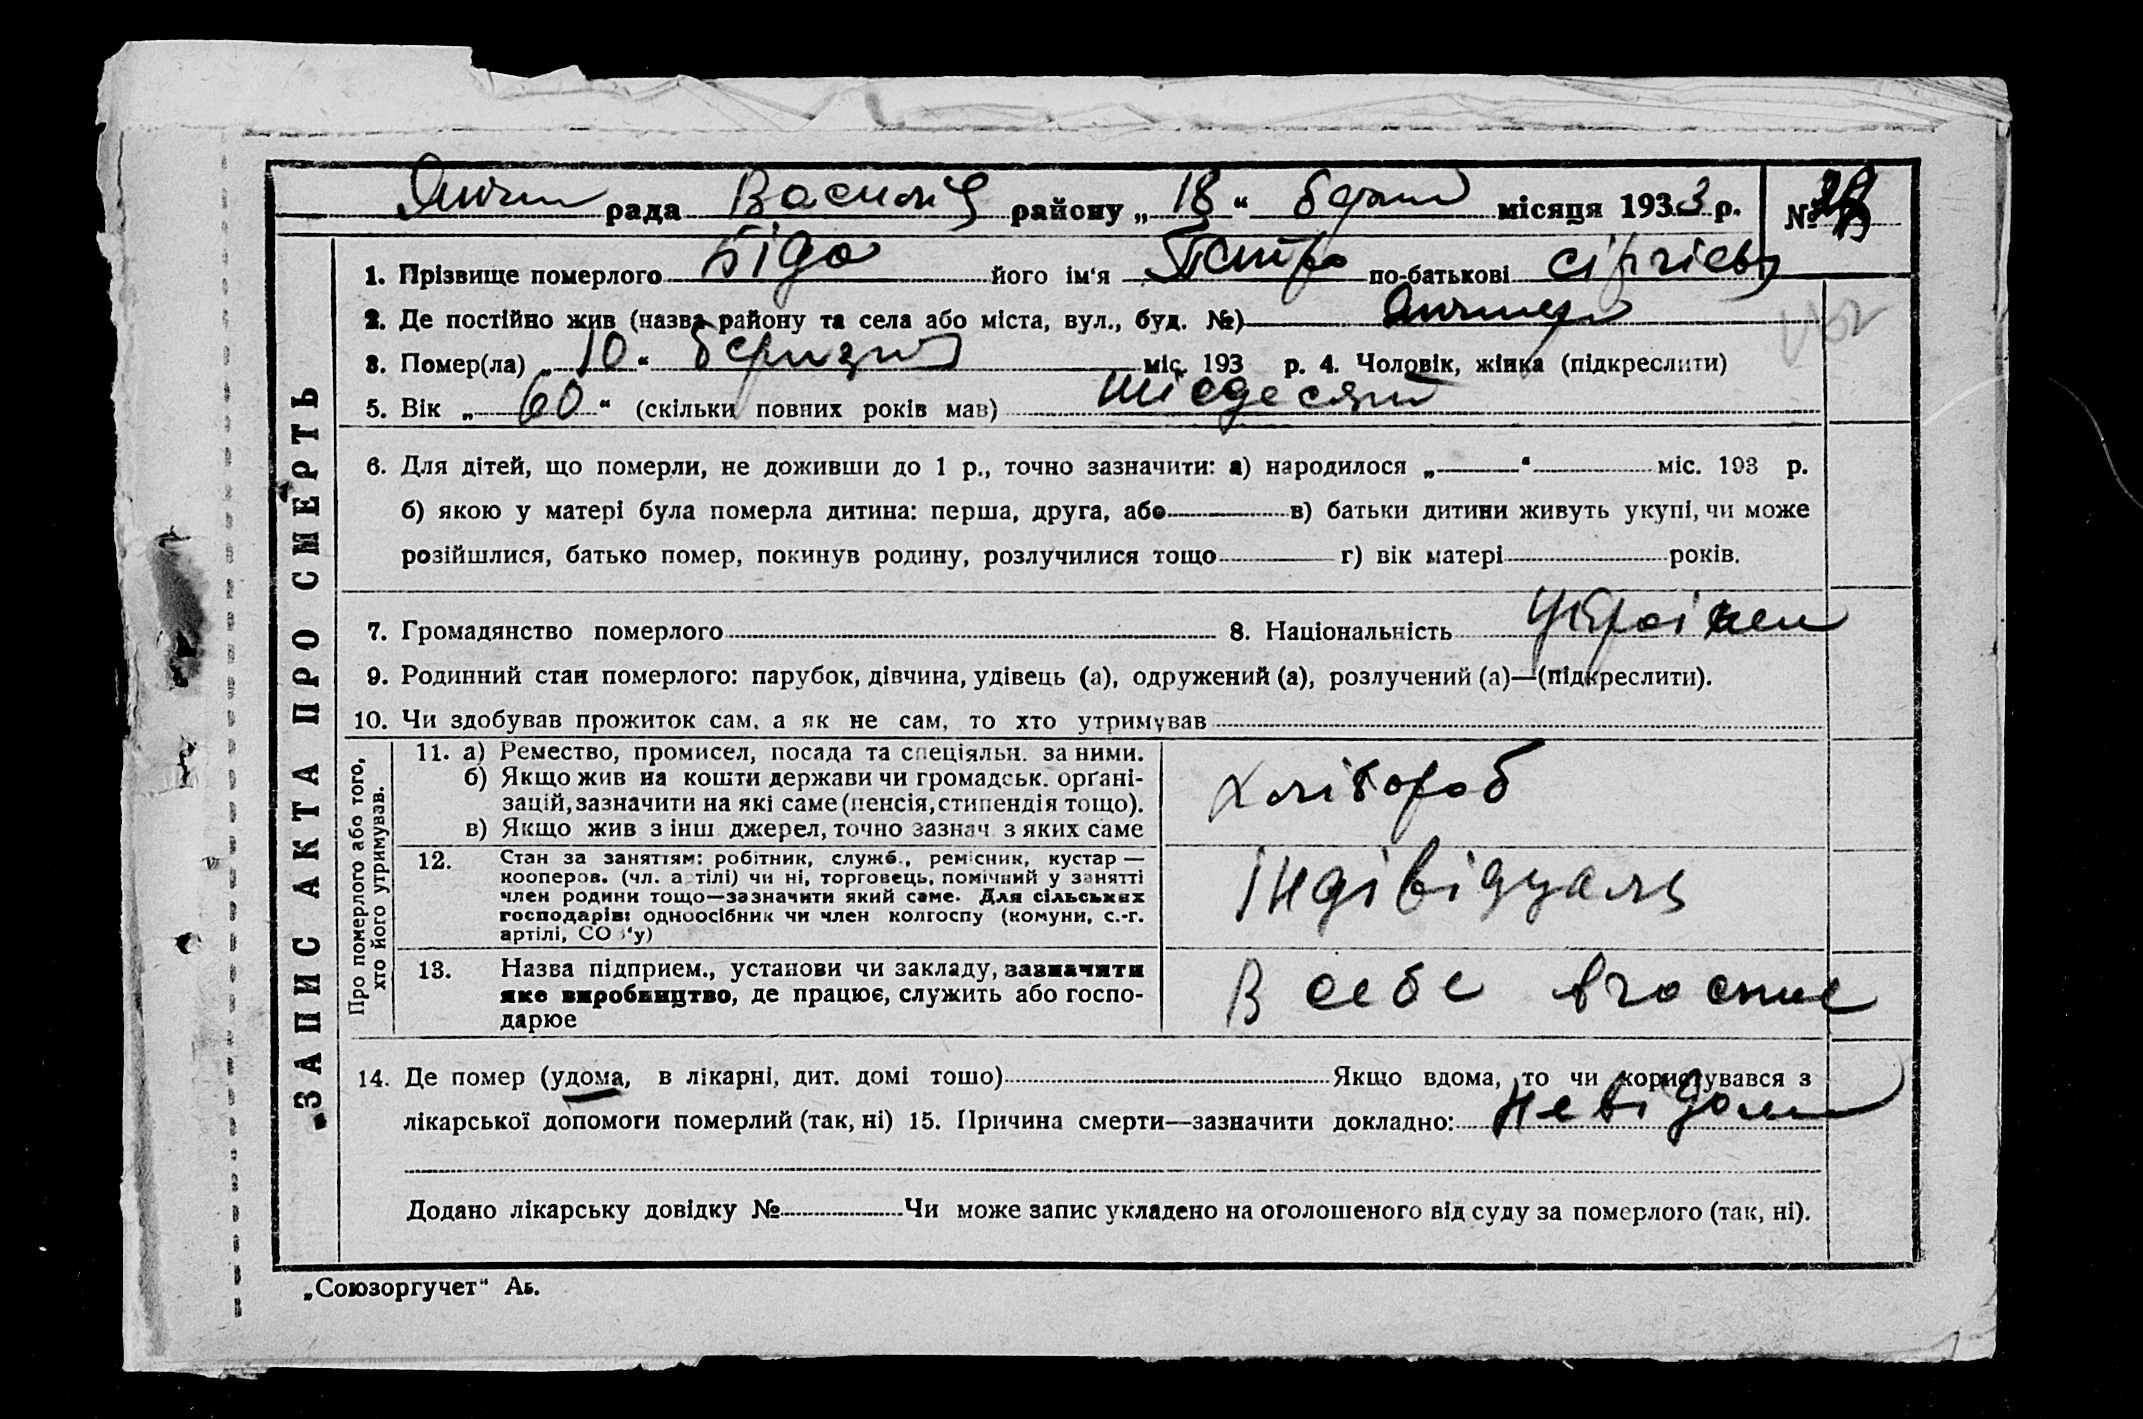 рада Василів району „ 18 “ місяця 1933 р. №
1. Прізвище померлого Біда його ім'я Петро по-батькові Сіргієв
2. Де постійно жив (назва району та села або міста, вул., буд. №)
3. Помер(ла) „ 10 “ березня міс. 193 р. 4. Чоловік, жінка (підкреслити)
5. Вік „ 60 “ (скільки повних років мав) шісдесят
6. Для дітей, що померли, не доживши до 1 р., точно зазначити: а) народилося „ “ міс. 193 р.
б) якою у матері була померла дитина: перша, друга, або в) батьки дитини живуть укупі, чи може
розійшлися, батько помер, покинув родину, розлучилися тощо г) вік матері років.
7. Громадянство померлого 8. Національність Українец
9. Родинний стан померлого: парубок, дівчина, удівець (а), одружений (а), розлучений (а)—(підкреслити).
10. Чи здобував прожиток сам, а як не сам, то хто утримував
Про померлого або того,
хто його утримував.
11. а) Ремество, промисел, посада та спеціяльн. за ними.
б) Якщо жив на кошти держави чи громадськ. органі-
зацій, зазначити на які саме (пенсія, стипендія тощо).
в) Якщо жив з інш. джерел, точно зазнач. з яких саме
хлібороб
12. Стан за заняттям: робітник, служб., ремісник, кустар —
кооперов. (чл. артілі) чи ні, торговець, помічний у занятті
член родини тощо—зазначити який саме. Для сільських
господарів: одноосібник чи член колгоспу (комуни, с.-г.
артілі, СОЗ'у)
індівідуаль
13. Назва підприєм., установи чи закладу, зазначити
яке виробництво, де працює, служить або госпо-
дарює
В себе
14. Де помер (удома, в лікарні, дит. домі тощо) Якщо вдома, то чи користувався з
лікарської допомоги померлий (так, ні) 15. Причина смерти—зазначити докладно: невідома
Додано лікарську довідку № Чи може запис укладено на оголошеного від суду за померлого (так, ні).
„ЗАПИС АКТА ПРО СМЕРТЬ
„Союзоргучет“ Аь.